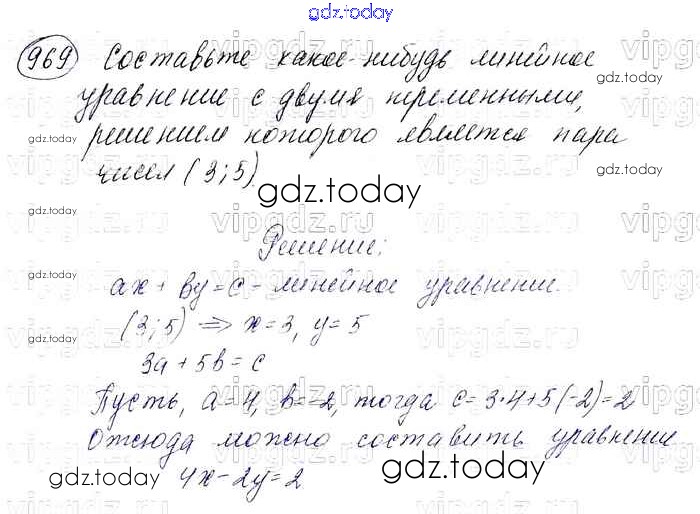 gdz.today
969 Составьте какое-нибудь линейное
уравнение с двумя переменными,
решением которого является пара
чисел (3; 5)
Решение:
ax + by = c - линейное уравнение.
(3; 5) => x = 3, y = 5
3a + 5b = c
Пусть, a = 4, b = -2, тогда c = 3·4+5(-2)=2
Отсюда можно составить уравнение
4x - 2y = 2
gdz.today
gdz.today
gdz.today
gdz.today
gdz.today
gdz.today
gdz.today
gdz.today
vipgdz.ru